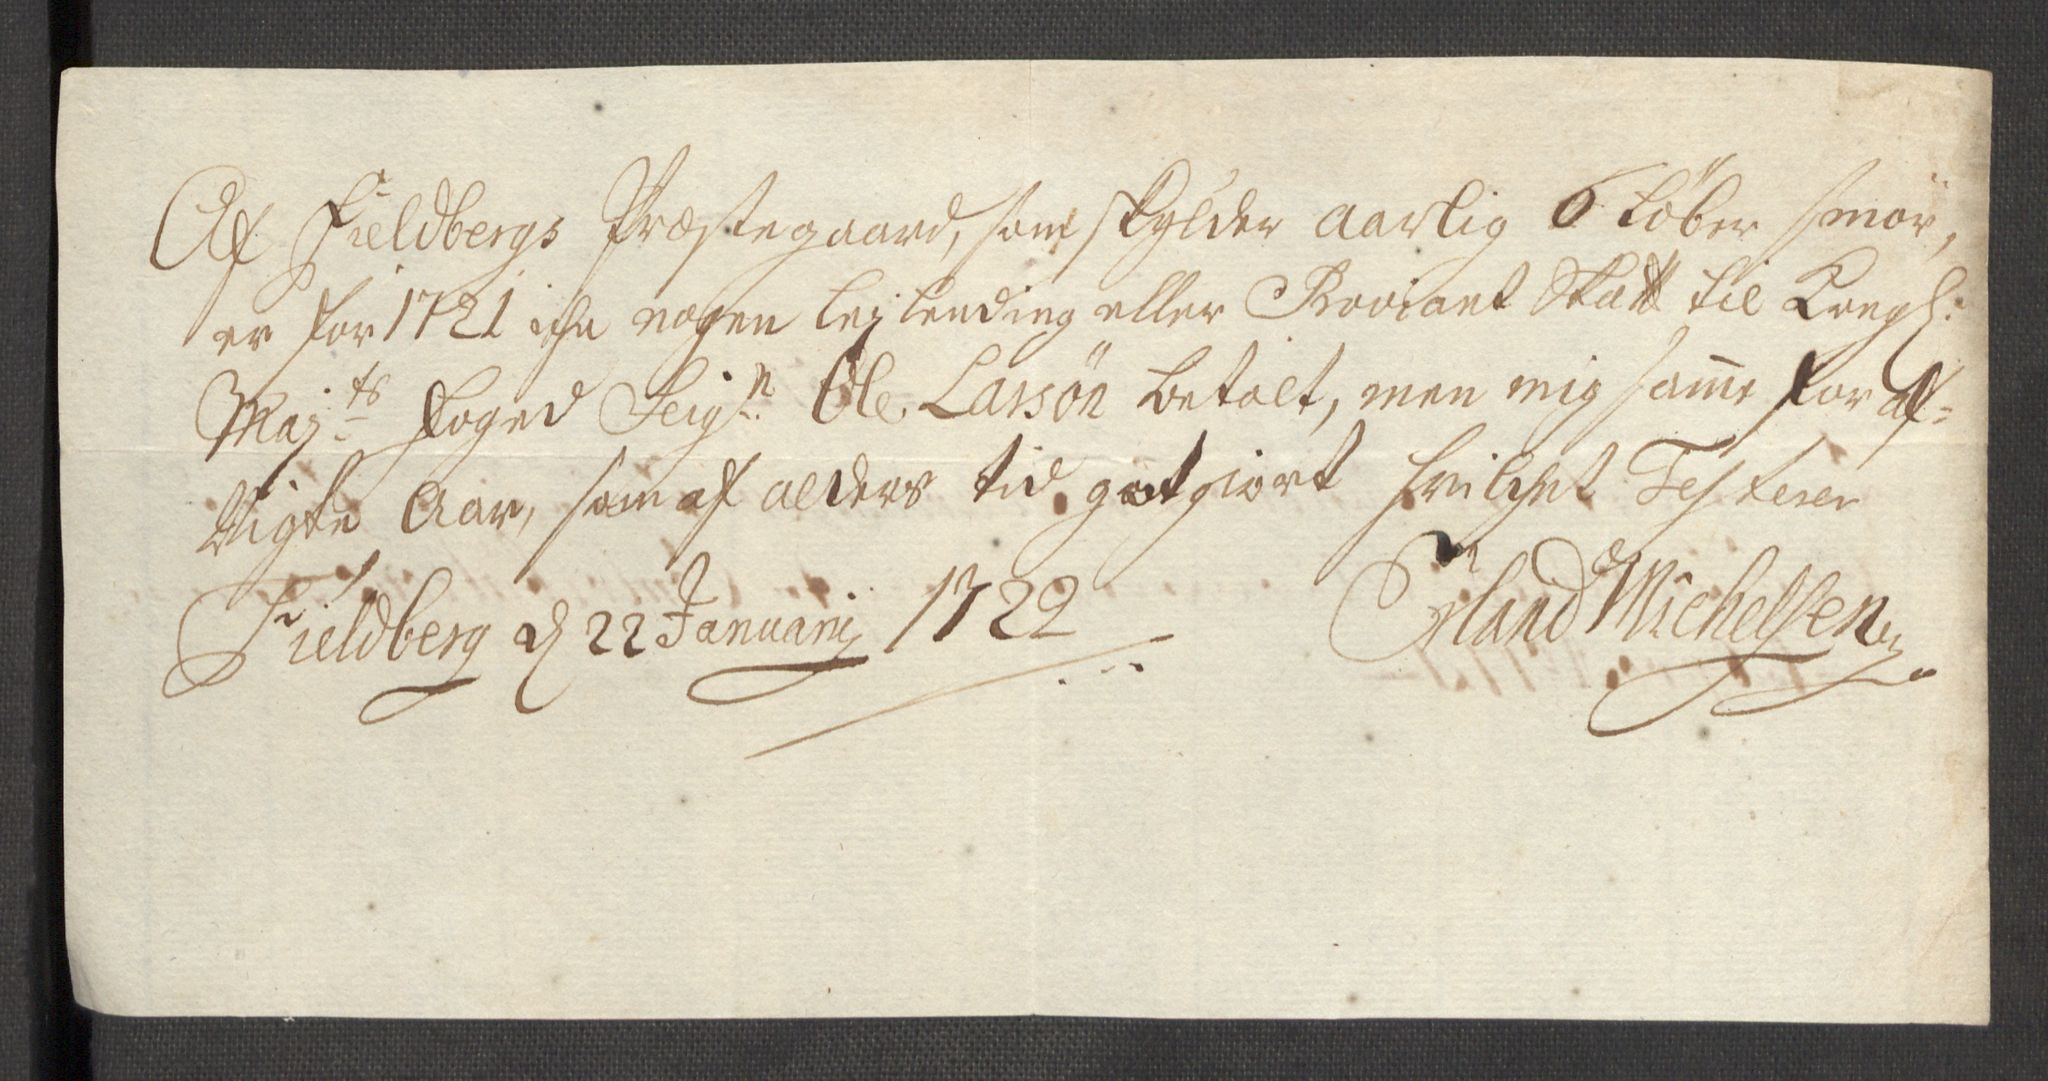 Af Fieldbergs Præstegaard, som skylder aarlig 6 Løber smör,
er for 1721 iche nogen leylending eller Proviant Skatt til Kongl:
Maj:ts foged Seig:r Ole Larsön betalt, men mig samme for af-
vigte Aar, som af alders tid godtgiort hvilchet Testerer
Fieldberg d 22 Januarij 1722 Erland Michelsen